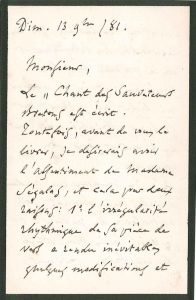 Dim. 13 9bre /81.
Monsieur,
Le "Chant des Sauveteurs
Bretons est écrit.
Toutefois, avant de vous le
livrer, je désirerais avoir
l'assentiment de Madame
Ségalas, et cela pour deux
raisons: 1º l'irrégularité
rhythmique de sa pièce de
vers a rendu inévitables
quelques modifications et